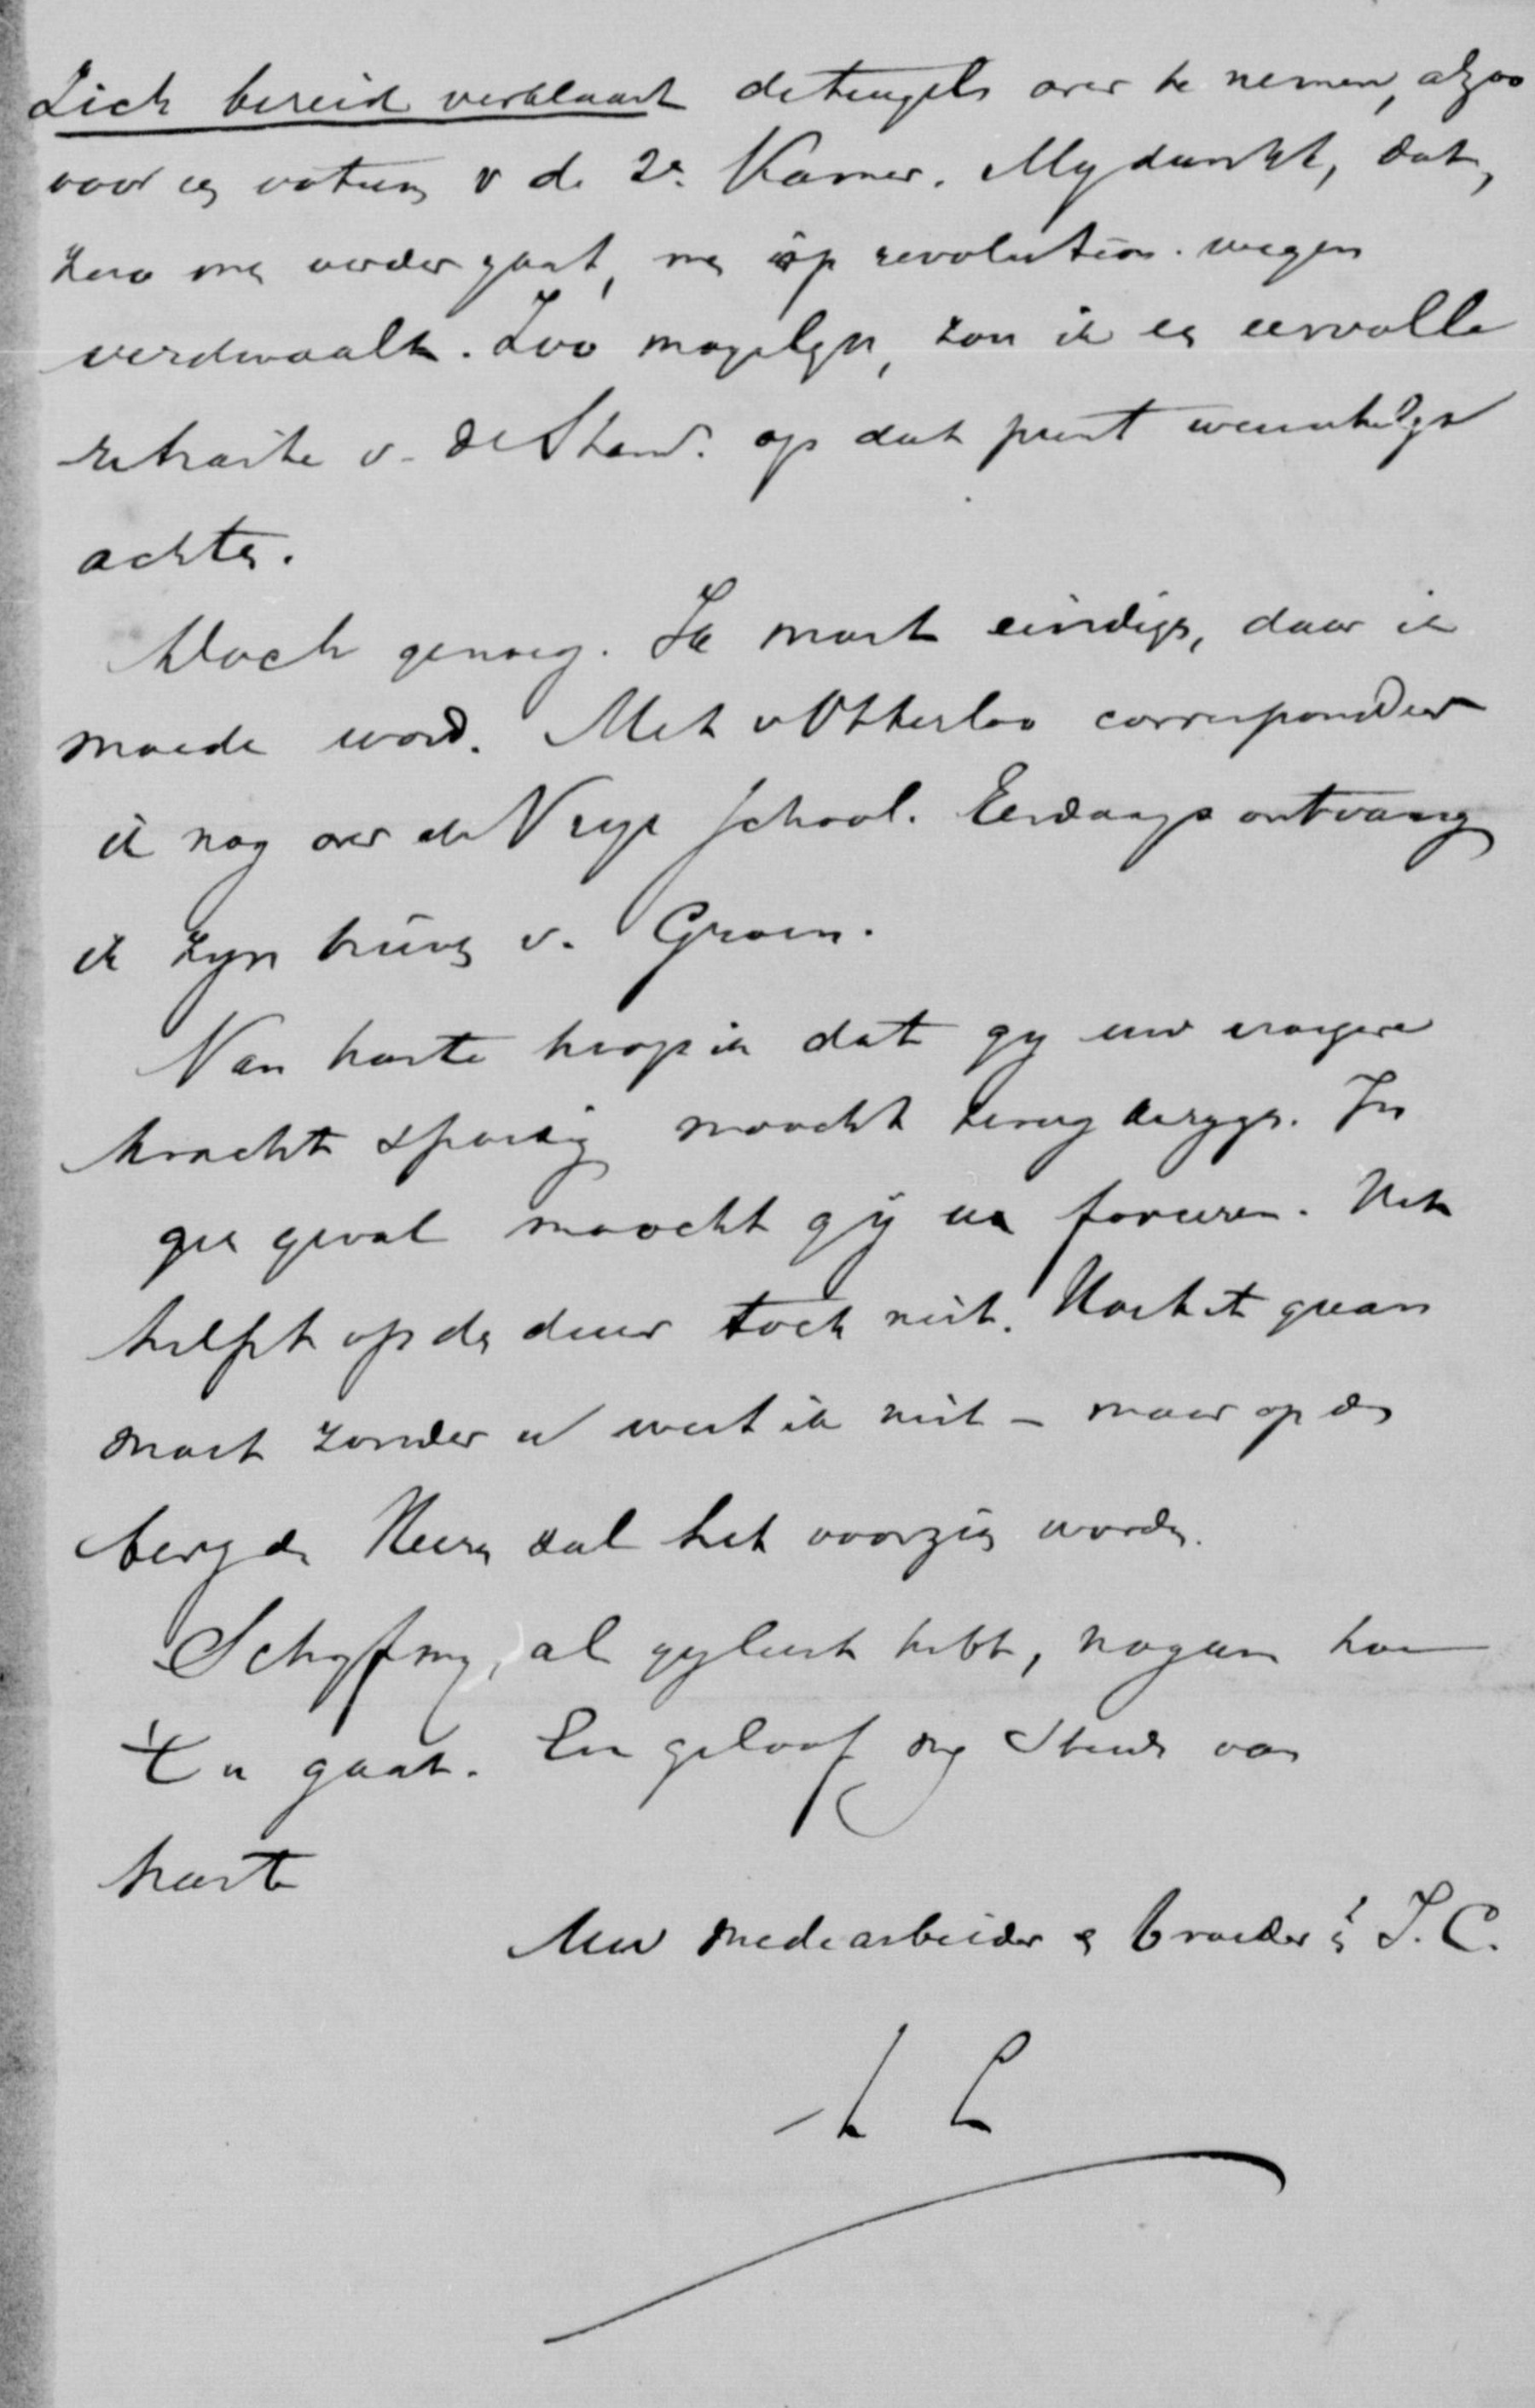 Zich bereid verklaart de teugels over te nemen, alzoo
voor eq votum v de 2e. Kamer. My dunkt, dat,
zoo me verder gaat, me op revolution. wegen
verdwaalt. Zoo mogelyk, zou ik eq eervolle
retraite v. de Stand. op dat punt wenschelyk
achten.
Doch genoeg. Ik moet eindigen, daar ik
moede word. Met v Otterloo correspondeer
ik nog over de Vrye School. Eerdaags ontvang
ik zyn brieven v. Groen.
Van harte hoop ik dat gy uw vroegere
kracht spoedig moocht terug krygen. In
geen geval moocht gy uw forceeren. Het
helpt op den duur toch niet. Hoe het gaan
moet zonder u weet ik niet – maar op den
berg des Heeren zal het voorzien worden.
Schryf my, al gy lust hebt, nog eens hoe
't u gaat. En geloof my steeds van
harte
Uw medearbeider & broeder in J. C.